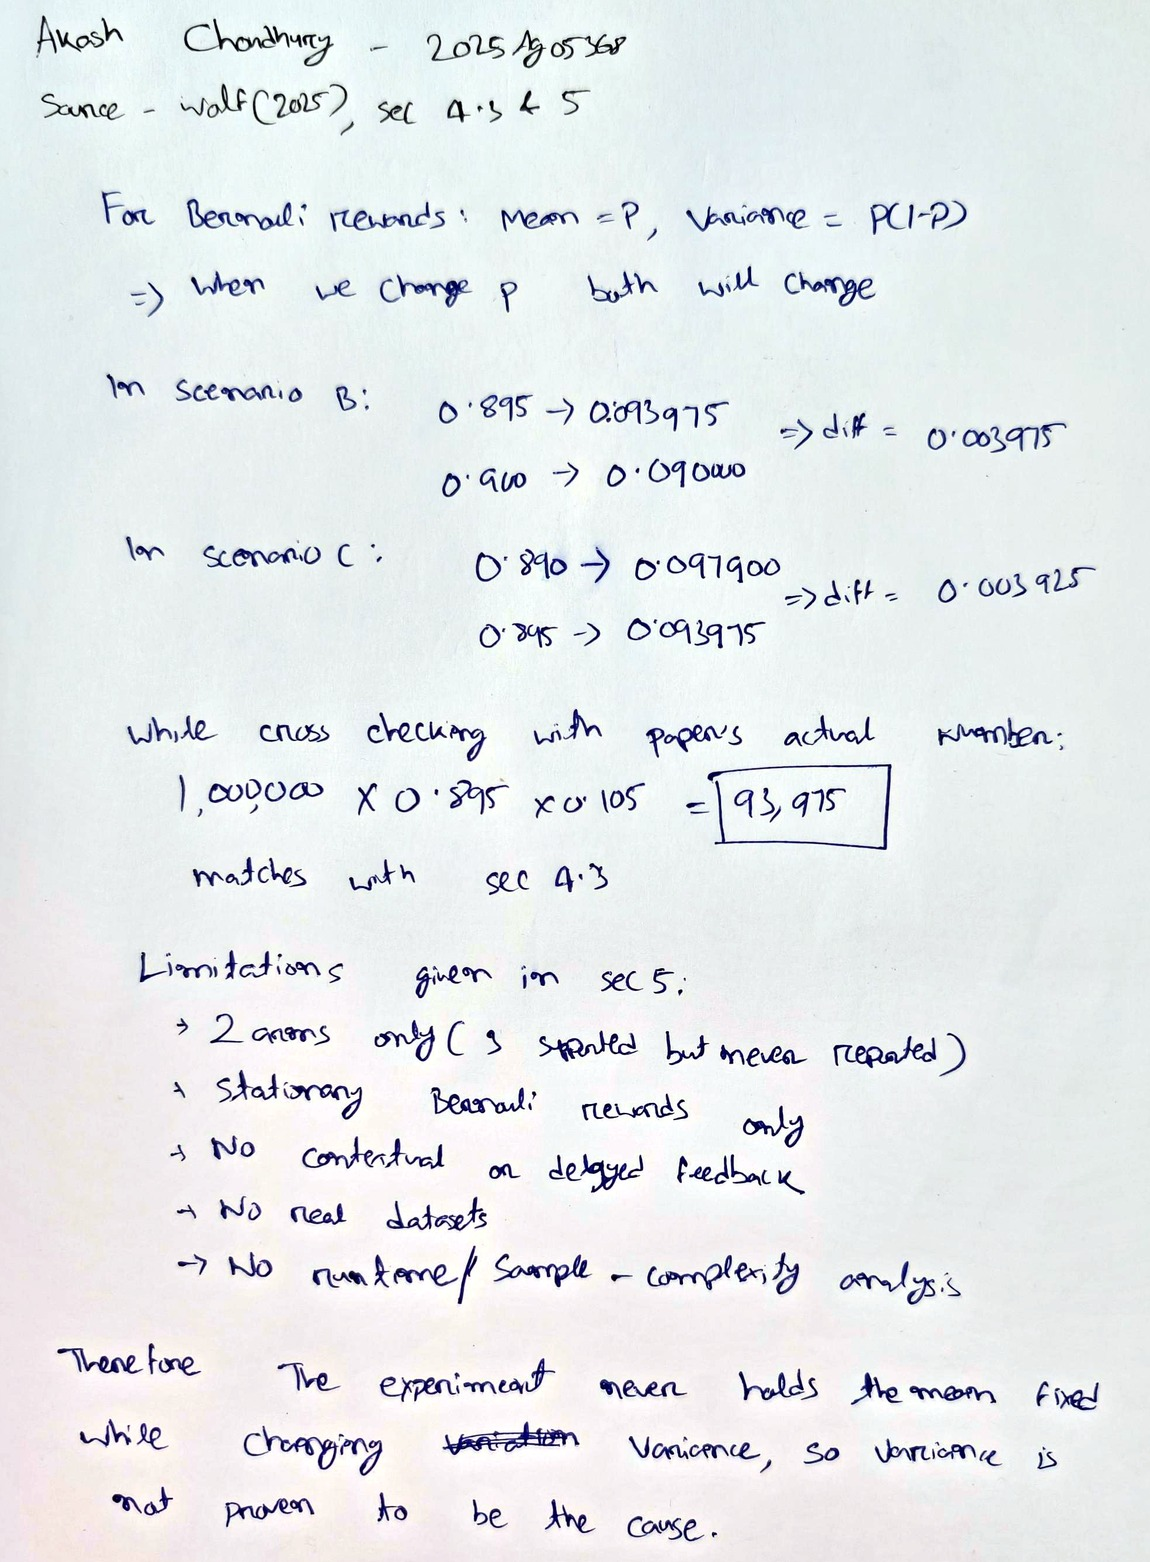 Akash Chondhury - 2025Ag05368
Source - Wolf(2025), sec 4.3 & 5
For Bernouli rewards: Mean = P, Variance = P(1-P)
=> When we change p both will change
In scenario B:
0.895 → 0.093975
=> diff = 0.003975
0.900 → 0.090000
In scenario C:
0.890 → 0.097900
=> diff = 0.003925
0.895 → 0.093975
While cross checking with paper's actual number:
1,000,000 X 0.895 x 0.105 = 93,975
matches with sec 4.3
Limitations given in sec 5:
→ 2 arms only (3 started but never reported)
→ Stationary Bernouli rewards only
→ No contextual or delayed feedback
→ No real datasets
→ No runtime / Sample - complexity analysis
Therefore The experiment never holds the mean fixed
while changing Variance, so variance is
not proven to be the cause.